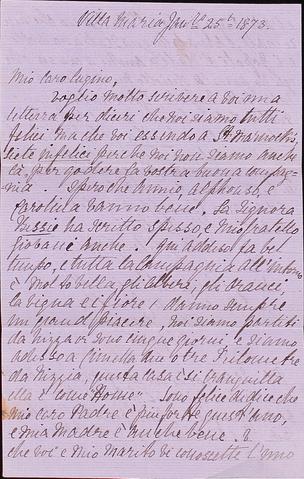 Villa Maria Jan. 25th 1873.
Mio caro cugino,
Voglio molto scrivere a voi una
lettera per dirvi che noi siamo tutti
felici ma che voi essendo a St
siete infelice perche noi non siamo anche
la, per godere la vostra buona compag-
nia. Spero che Annie, Alphonso, e
Carolina vanno bene. La Signora
ha scritto spesso e mio fratello
Giovane anche. Qui adesso fa bel
tempo, e tutta la Campagnia all'intorno
è molto bella gli alberi, gli aranci
la vigna e i fiori danno sempre
un grand piacere, noi siamo partiti
da Nizza vi sono cinque giorni e siamo
adesso a due o tre kilometre
da Nizzia, questa casa è si tranquilla
ella è come "Home". Sono felice di dice che
mio caro Padre è piu forte quest'ano,
e mia Madre è anche bene. E
che voi e mio marito vi conoscette l'uno